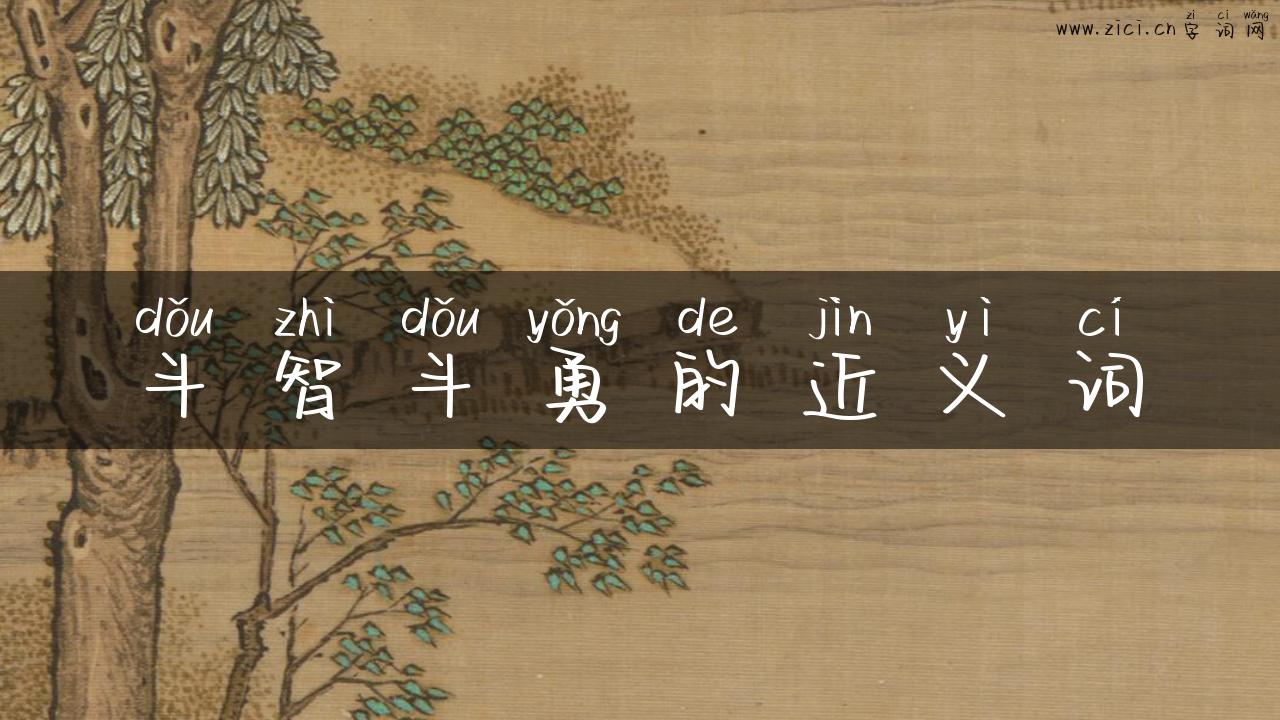 zì cí wǎng
www.zici.cn 字词网
dǒu zhì dǒu yǒng de jìn yì cí
斗智斗勇的近义词